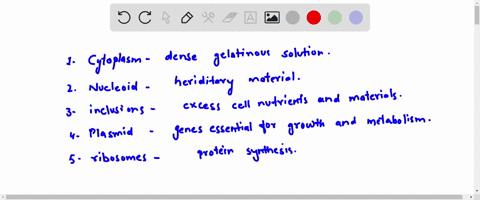 1. Cytoplasm - dense gelatinous solution.
2. Nucleoid - heriditary material.
3. inclusions - excess cell nutrients and materials.
4. Plasmid - genes essential for growth and metabolism.
5. ribosomes - protein synthesis.